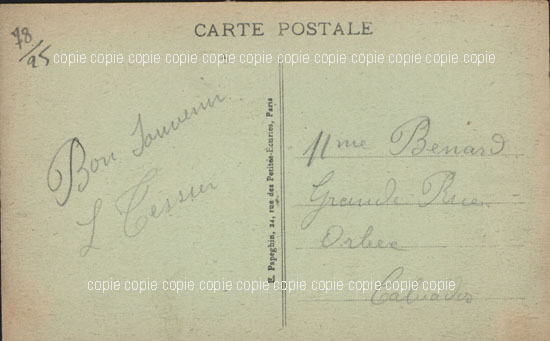 78/95
CARTE POSTALE
copie copie copie copie copie copie copie copie copie copie copie
Bon Souvenir
L Tessier
E. Papeghin, 24, rue des Petites-Écuries, Paris
Mme Bénard
Grande Rue
Orbec
Calvados
copie copie copie copie copie copie copie copie copie copie